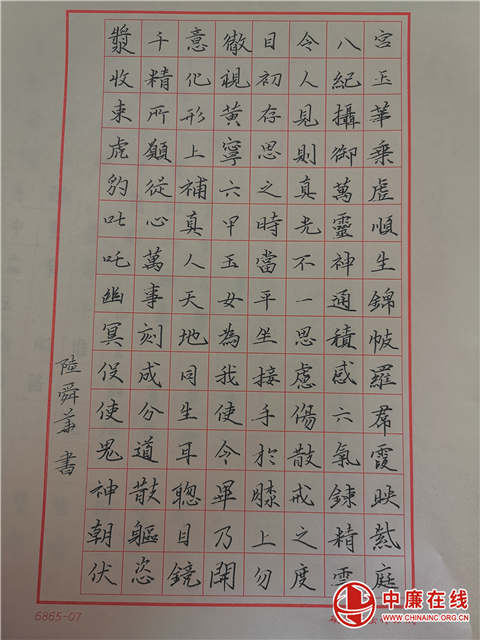 宮玉華乗虚順生錦帔羅帬霞映熱庭
八紀攝御萬靈神通積感六氣鍊精雲
令人見則真光不一思慮傷散戒之度
日初存思之時當平坐接手於膝上勿
徹視黄寧六甲玉女為我使令畢乃開
意化形上補真人天地同生耳聰目鏡
千精所願從心萬事刻成分道散軀恣
漿收束虎豹叱吒幽冥役使鬼神朝伏
陸舜華書
6865-07
中廉在线
WWW.CHINAINC.ORG.CN